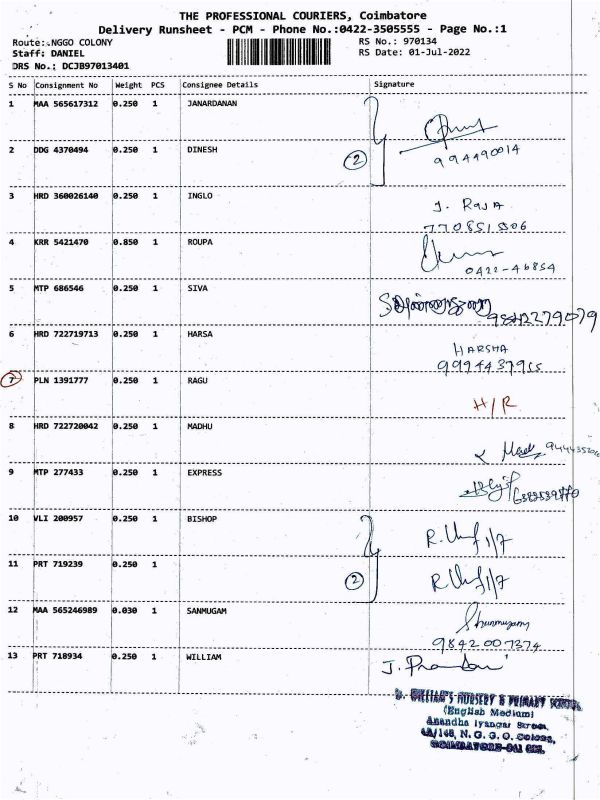 THE PROFESSIONAL COURIERS, Coimbatore
Delivery Runsheet - PCM - Phone No.:0422-3505555 - Page No.:1
Route:.NGGO COLONY RS No.: 970134
Staff: DANIEL RS Date: 01-Jul-2022
DRS No.: DCJB97013401
S No Consignment No Weight PCS Consignee Details Signature
1 MAA 565617312 0.250 1 JANARDANAN
2 DDG 4370494 0.250 1 DINESH 2
994490014
3 HRD 360026140 0.250 1 INGLO J. RAJA
4 KRR 5421470 0.850 1 ROUPA
0422-46854
5 MTP 686546 0.250 1 SIVA
9842279079
6 HRD 722719713 0.250 1 HARSA HARSHA
9994437955
7 PLN 1391777 0.250 1 RAGU H/R
8 HRD 722720042 0.250 1 MADHU
9 MTP 277433 0.250 1 EXPRESS
10 VLI 200957 0.250 1 BISHOP 1/7
11 PRT 719239 0.250 1 2 1/7
12 MAA 565246989 0.030 1 SANMUGAM Shanmugam
9842007374
13 PRT 718934 0.250 1 WILLIAM
WILLIAM'S NURSERY & PRIMARY SCHOOL
(English Medium)
Anandha Iyangar Street,
4A/148, N. G. G. O. Colony,